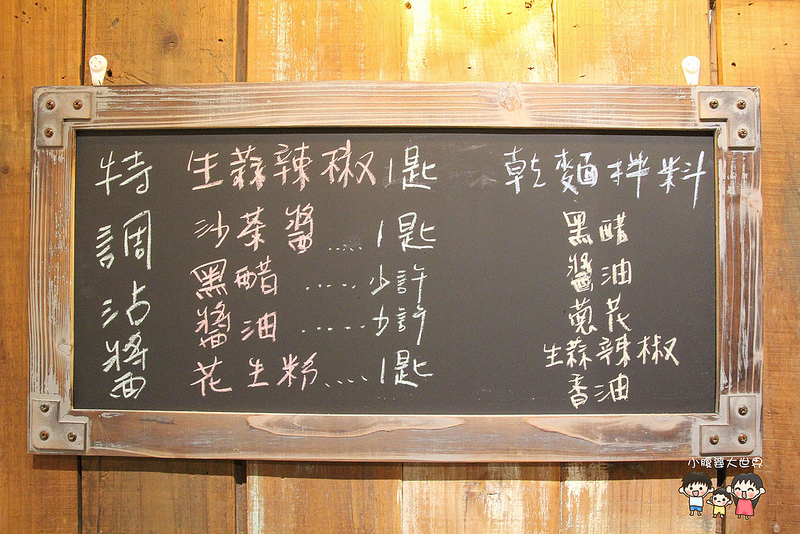 特調沾醬
生蒜辣椒1匙
沙茶醬.....1匙
黑醋......少許
醬油......少許
花生粉.....1匙
乾麵拌料
黑醋
醬油
蔥花
生蒜辣椒
香油
小腹婆大世界